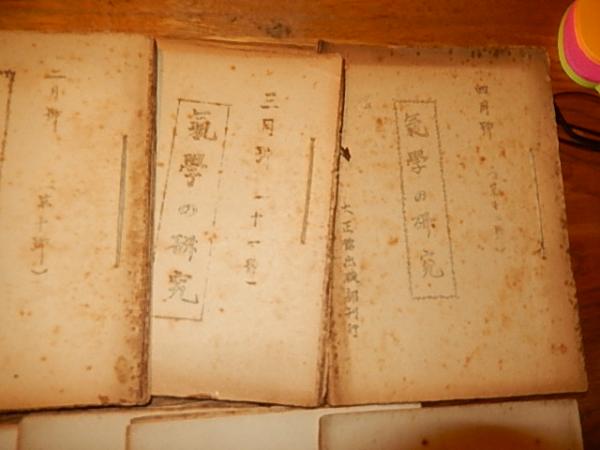 四月號
氣學の研究
大正館出版部刊行
三月號
(十一號)
氣學の研究
二月號
(第十號)